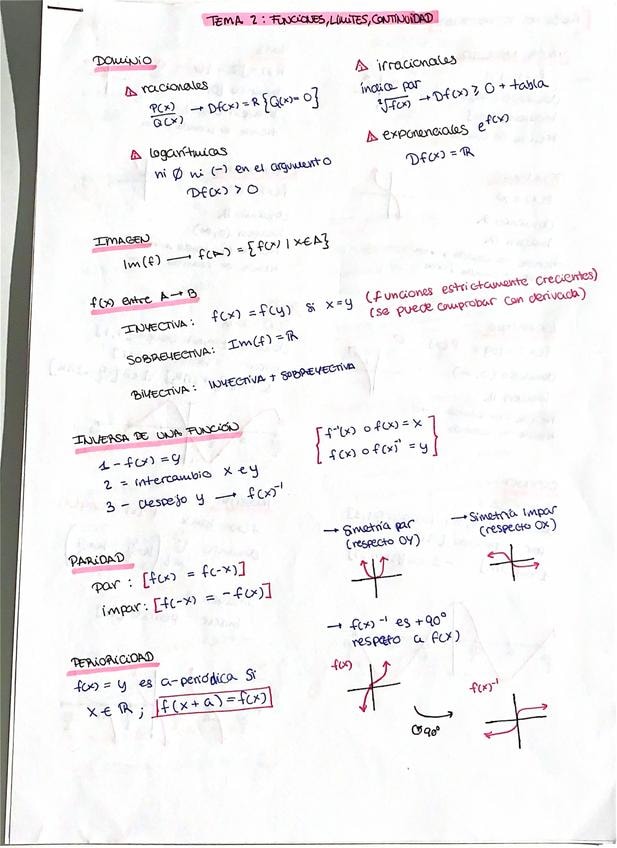 TEMA 2: FUNCIONES, LÍMITES, CONTINUIDAD
DOMINIO
⚠ racionales
P(x)/Q(x) → Df(x) = R {Q(x) = 0}
⚠ logarítmicas
ni Ø ni (-) en el argumento
Df(x) > 0
⚠ irracionales
índice par
√f(x) → Df(x) ≥ 0 + tabla
⚠ exponenciales e^f(x)
Df(x) = ℝ
IMAGEN
Im(f) → f(A) = {f(x) | x∈A}
f(x) entre A → B
INYECTIVA: f(x) = f(y) si x = y (funciones estrictamente crecientes)
(se puede comprobar con derivada)
SOBREYECTIVA: Im(f) = ℝ
BIYECTIVA: INYECTIVA + SOBREYECTIVA
INVERSA DE UNA FUNCIÓN
1 - f(x) = y
2 = intercambio x e y
3 - despejo y → f(x)⁻¹
[f⁻¹(x) o f(x) = x
f(x) o f(x)⁻¹ = y]
PARIDAD
par: [f(x) = f(-x)]
impar: [f(-x) = -f(x)]
→ Simetría par
(respecto OY)
→ Simetría impar
(respecto OX)
PERIORICIDAD
f(x) = y es a-periódica si
x ∈ ℝ; f(x+a) = f(x)
→ f(x)⁻¹ es +90°
respeto a f(x)
f(x)
↺90°
f(x)⁻¹